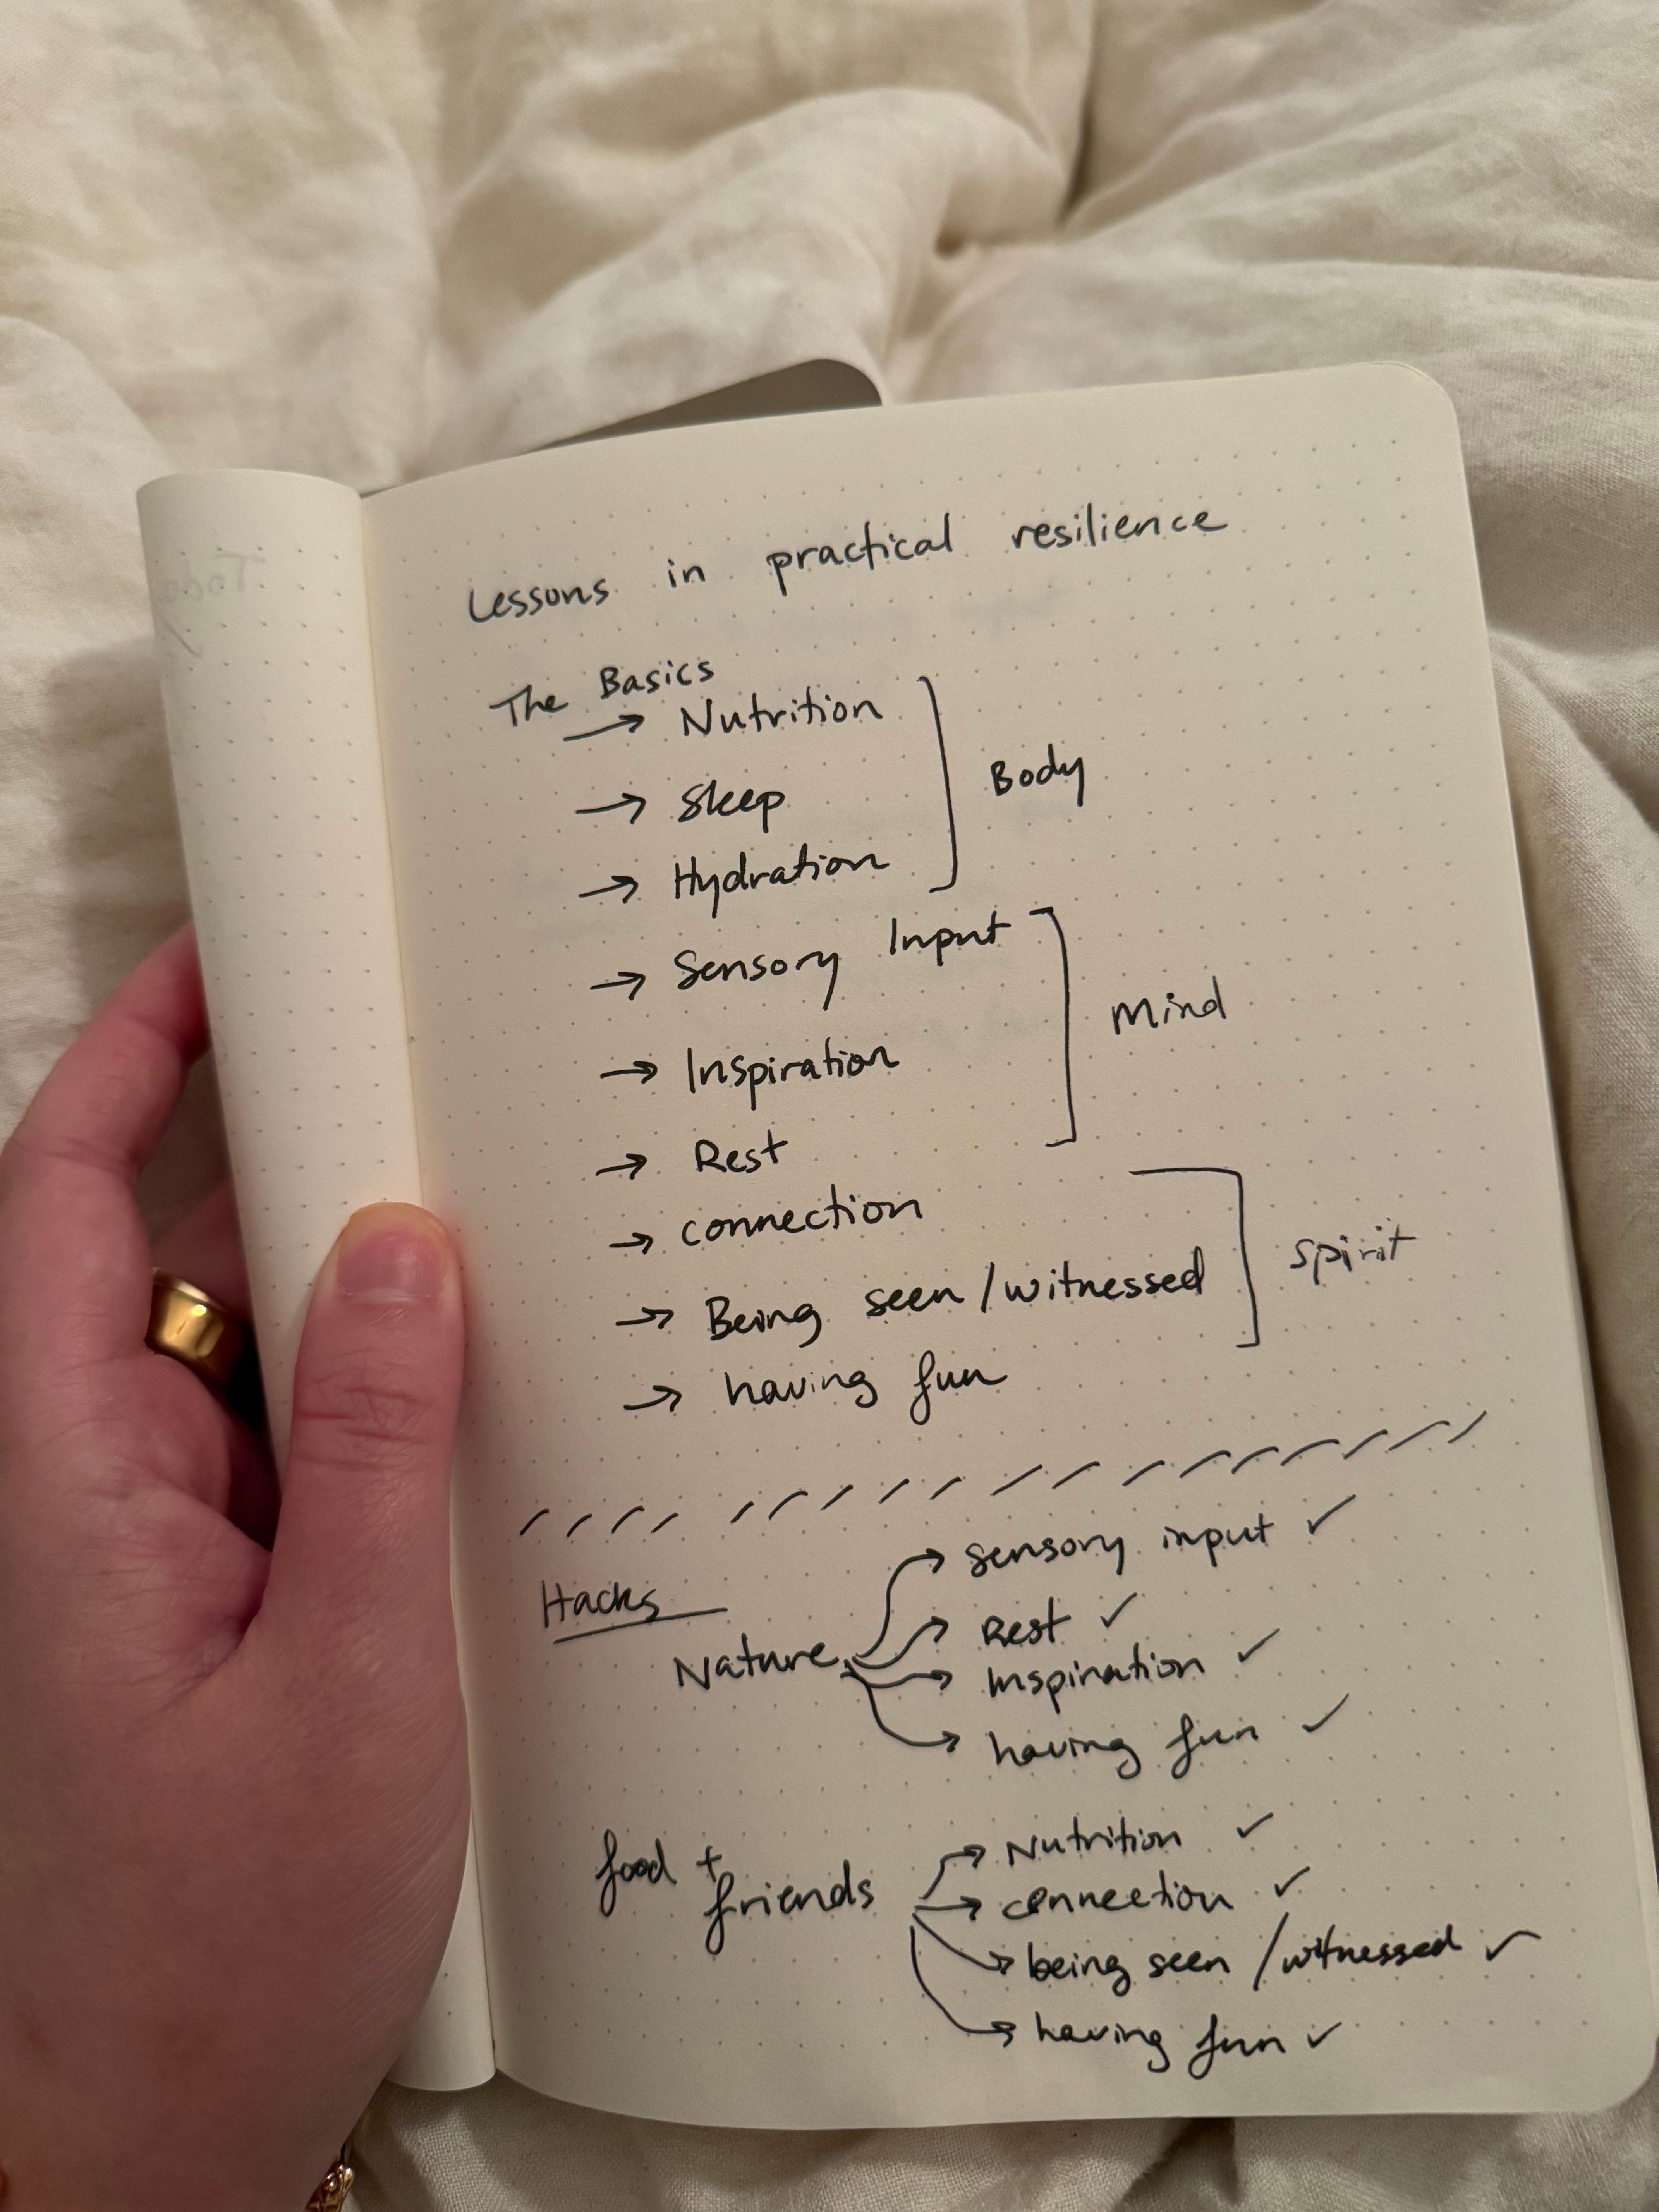 Lessons in practical resilience
The Basics
→ Nutrition
→ Sleep
→ Hydration
Body
→ Sensory Input
→ Inspiration
→ Rest
Mind
→ connection
→ Being seen/witnessed
→ having fun
Spirit
Hacks
Nature
→ sensory input ✓
→ Rest ✓
→ Inspiration ✓
→ having fun ✓
food +
friends
→ Nutrition ✓
→ connection ✓
→ being seen/witnessed ✓
→ having fun ✓